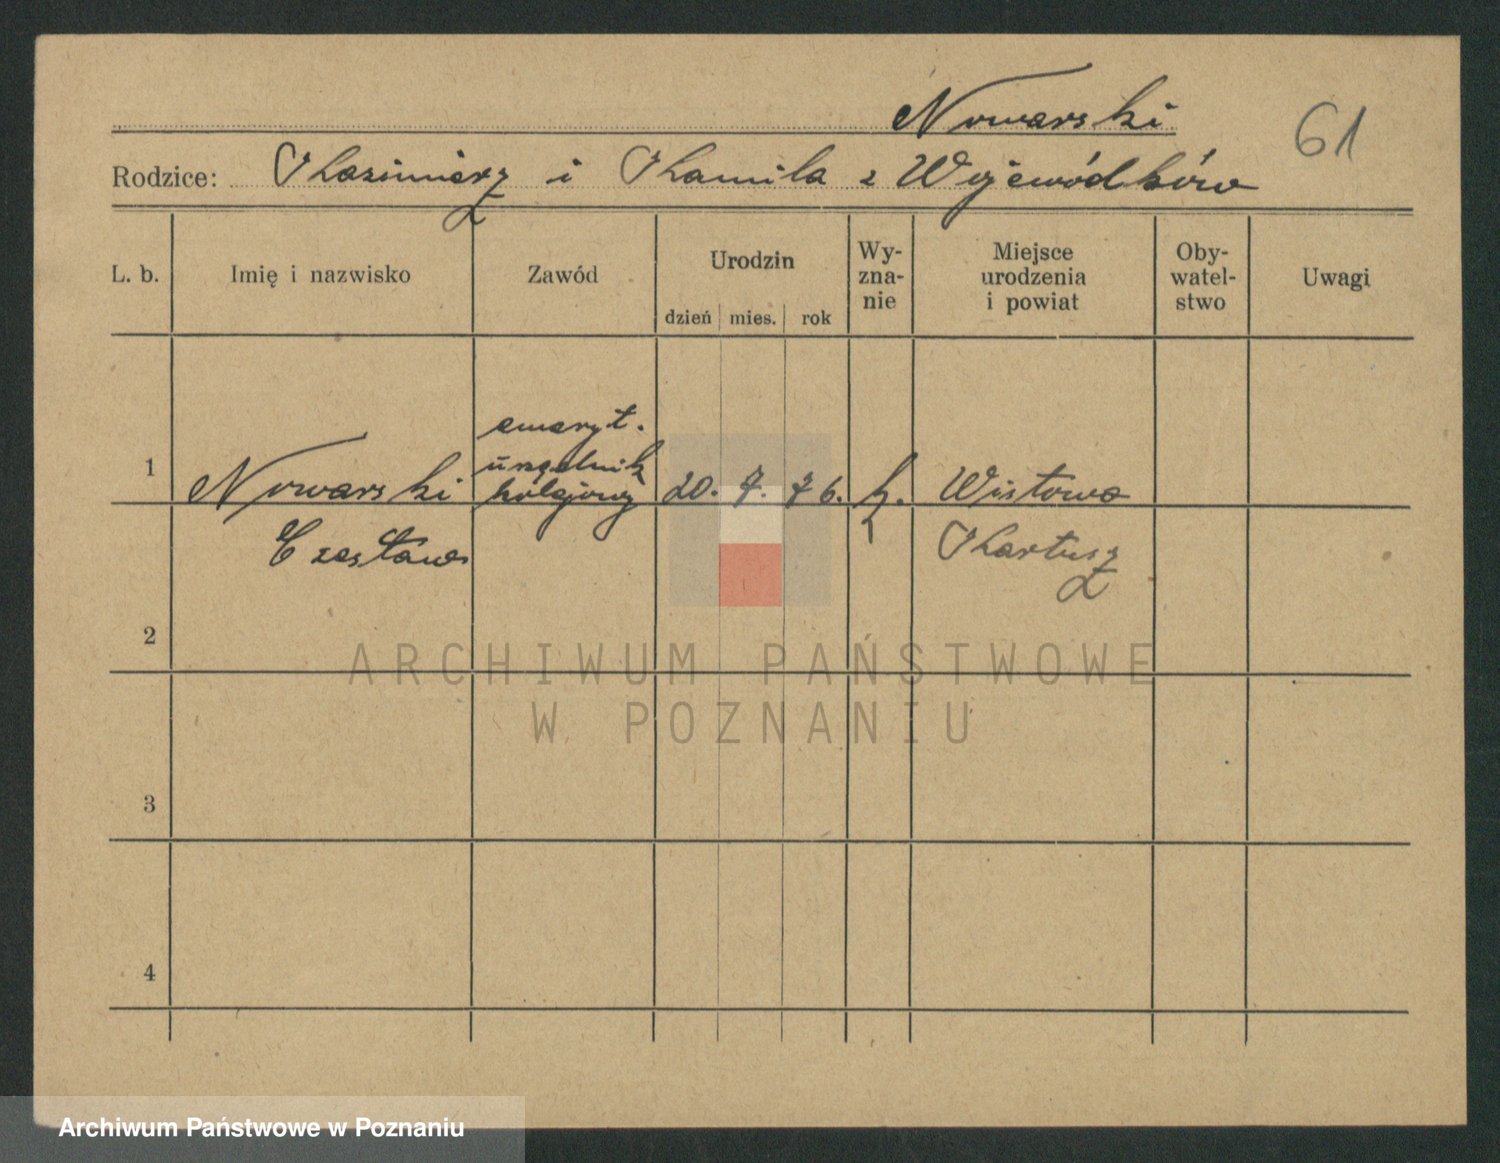 Nowarski
61
Rodzice: Kazimierz i Kamila z Wojewódków
L. b.
Imię i nazwisko
Zawód
Urodzin
dzień mies. rok
Wy-
zna-
nie
Miejsce
urodzenia
i powiat
Oby-
watel-
stwo
Uwagi
1
Nowarski
Czesław
emeryt.
urzędnik
kolejowy
20. 7. 76.
k.
Wistowa
Kartusz
2
3
4
ARCHIWUM PAŃSTWOWE
W POZNANIU
Archiwum Państwowe w Poznaniu